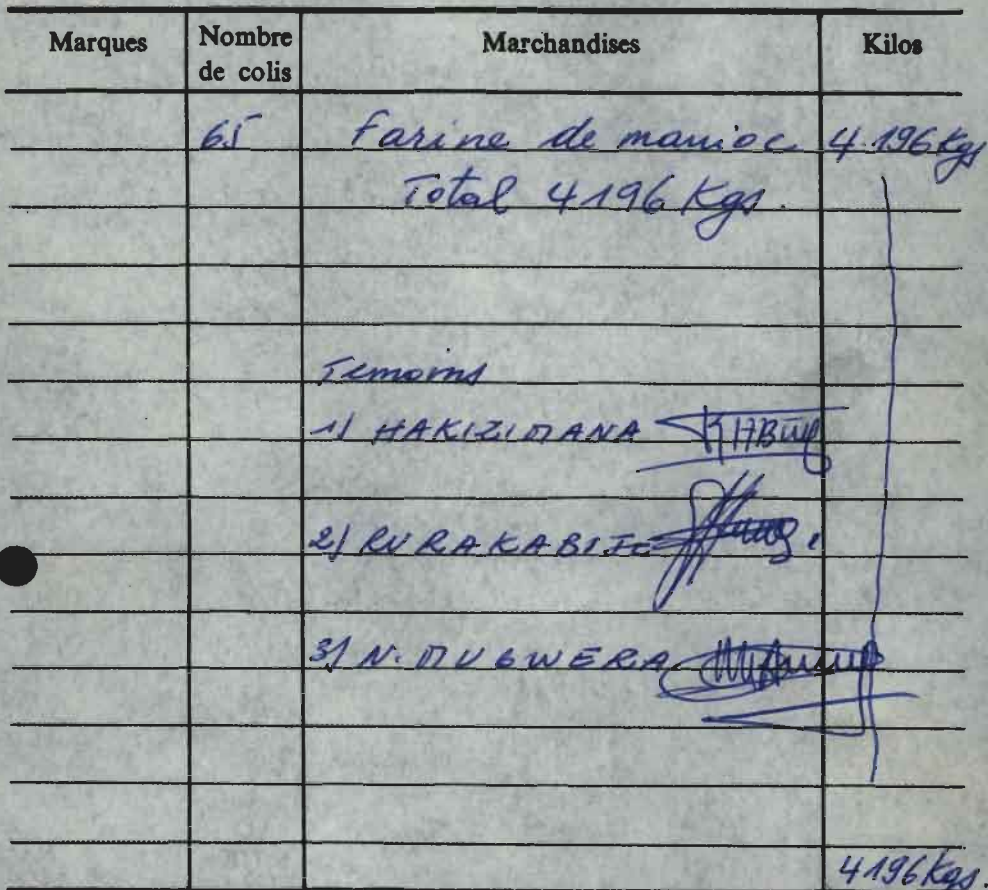 Marques Nombre de colis Marchandises Kilos
65 Farine de manioc 4.196 Kgs
Total 4196 Kgs.
Temoins
1/ HAKIZIMANA
2/ RURAKABIJE
3/ N. MUGWERA
4196 Kgs.